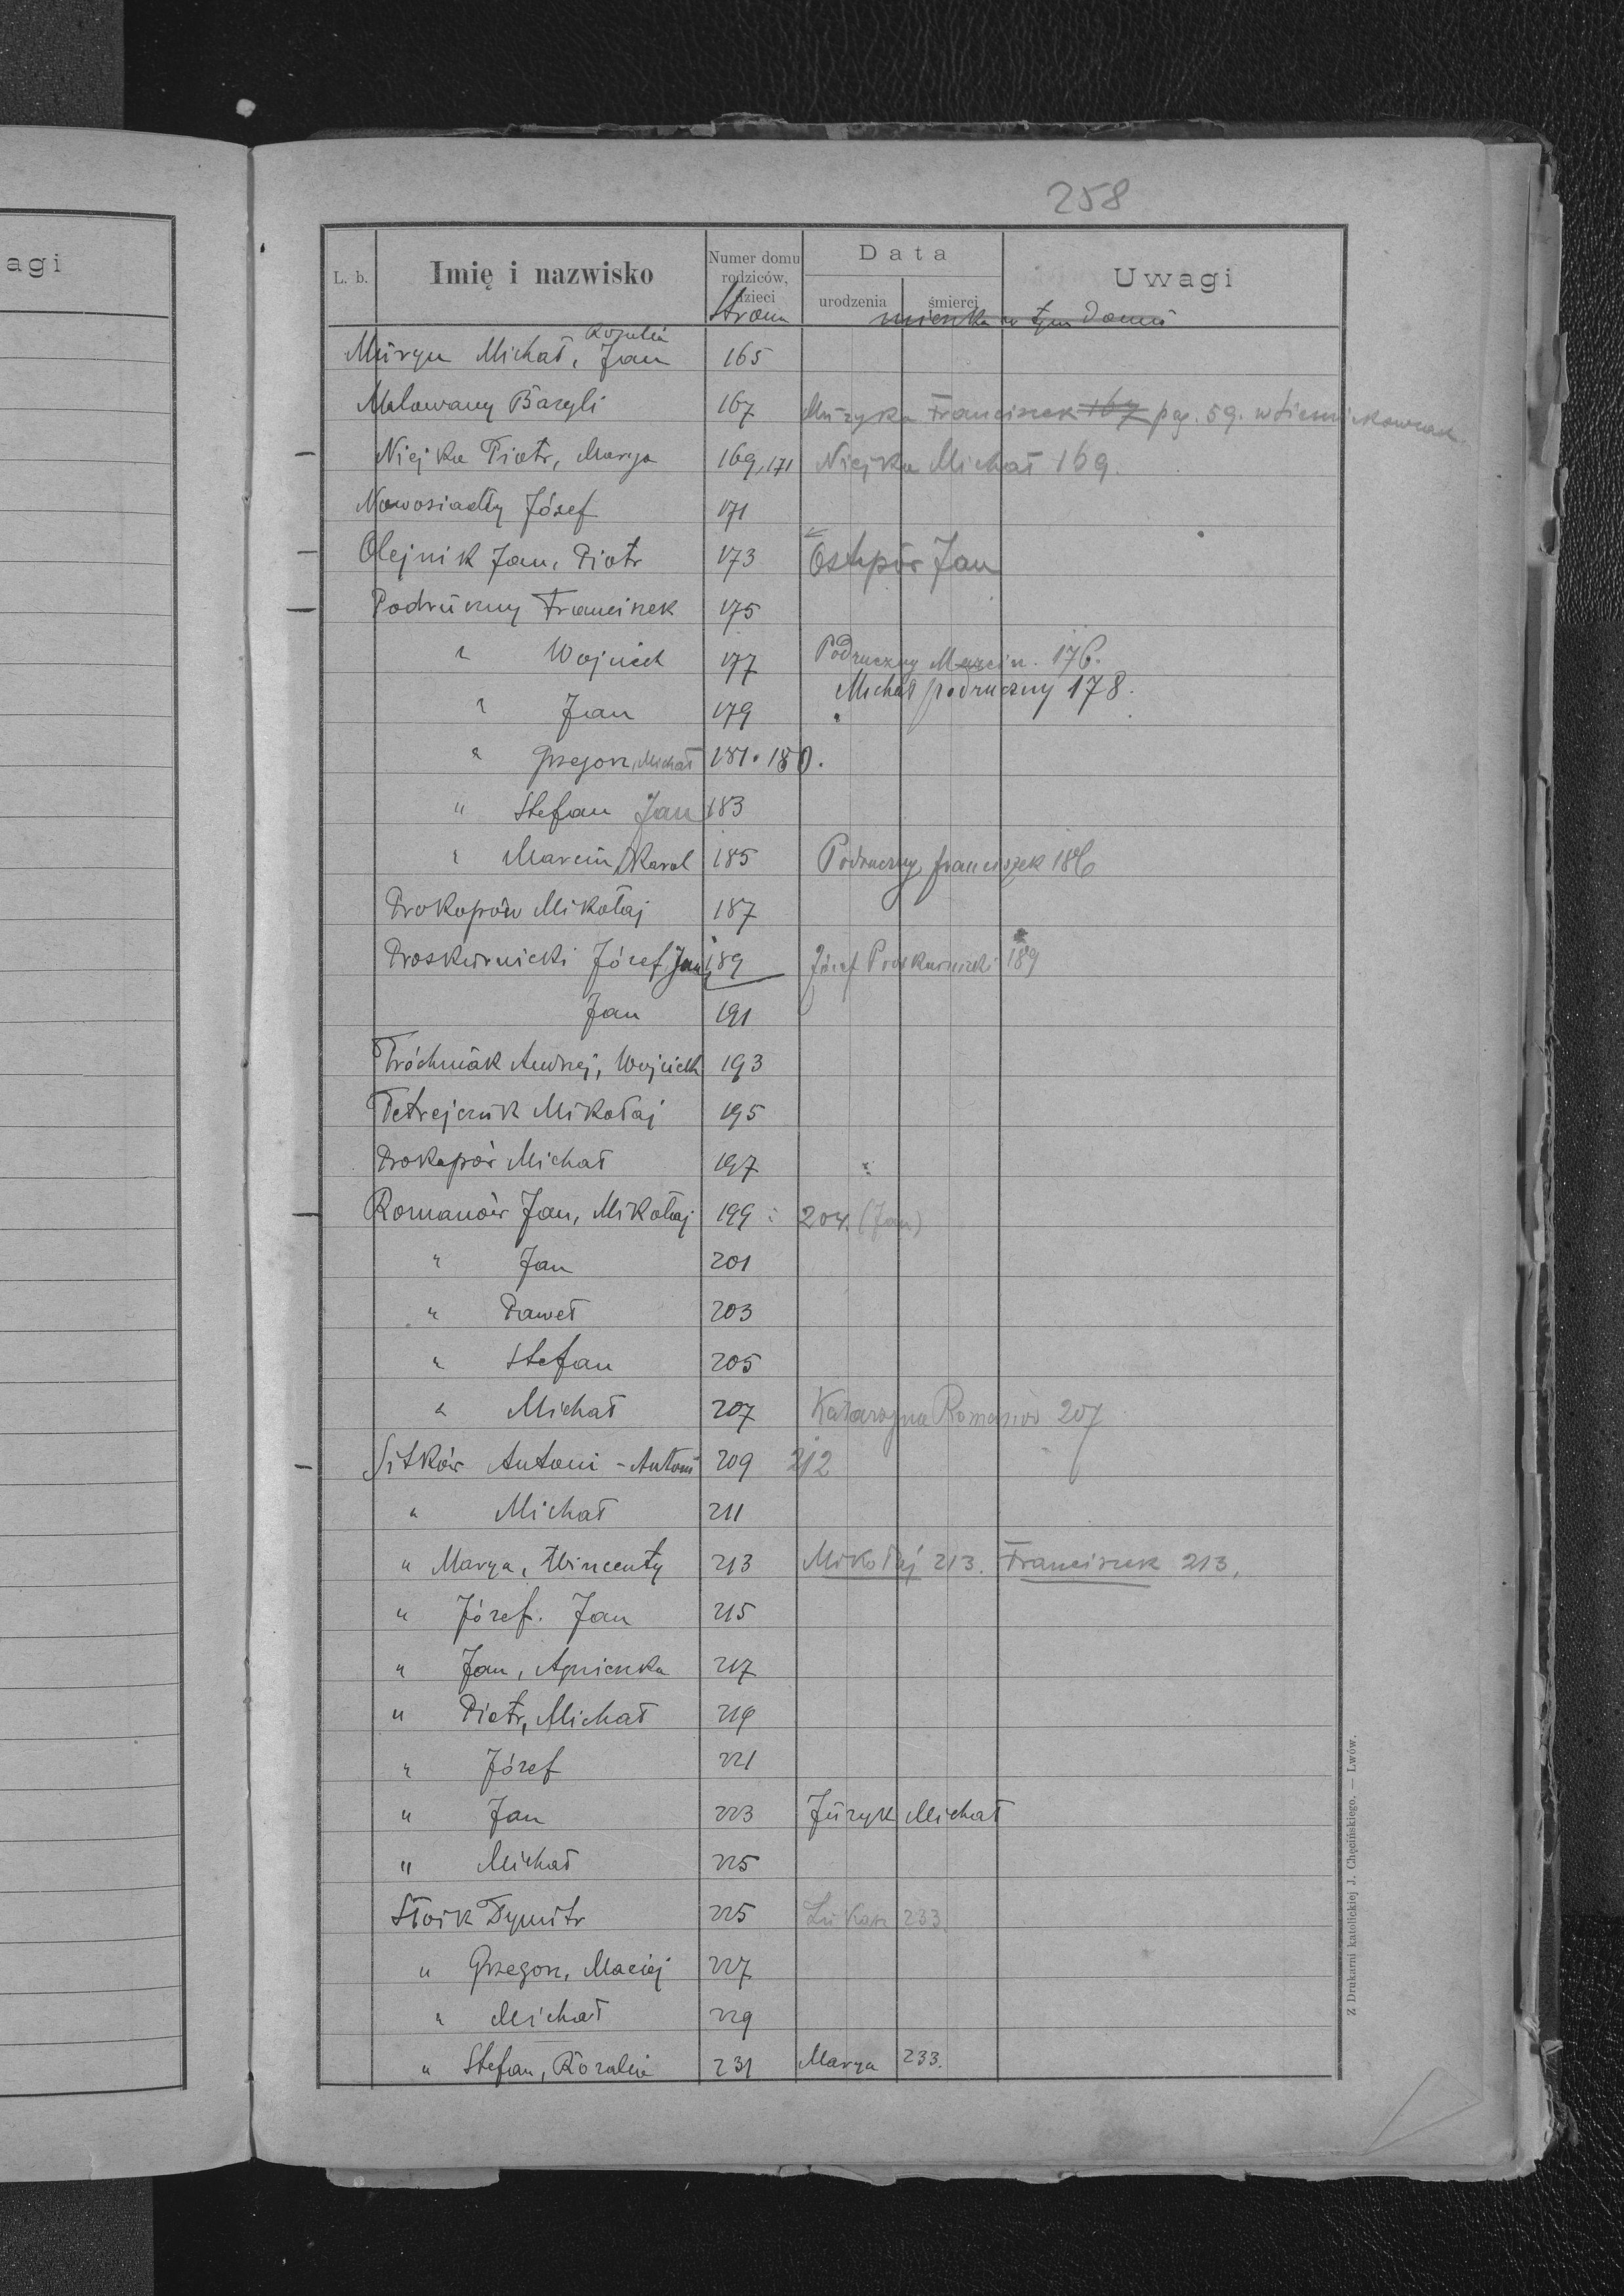 258
agi
L. b. Imię i nazwisko Numer domu rodziców, dzieci Data Uwagi
urodzenia śmierci
Strona mieszka w tym domu
Rozalia
Muryn Michał, Jan 165
Malowany Bazyli 167 Muzyka Franciszek 167 pag. 59. w
Niejka Piotr, Marya 169, 171 Niejka Michał 169.
Nowosiadły Józef 171
Olejnik Jan, Piotr 173 Ostapór Jan
Podruczny Franciszek 175
" Wojciech 177 Podruczny Marcin. 176.
Michał podruczny 178.
" Jan 179
" Grzegorz, Michał 181. 180.
" Stefan Jan 183
" Marcin, Karol 185 Podruczny franciszek 186
Prokopów Mikołaj 187
Proskurnicki Józef Jan 189 Józef Proskurnicki 189
Jan 191
Próchniak Andrzej, Wojciech 193
Petrejczuk Mikołaj 195
Prokopór Michał 197 "
Romanów Jan, Mikołaj 199 : 204. (Jan)
" Jan 201
" Paweł 203
" Stefan 205
" Michał 207 Katarzyna Romanów 207
Sitków Antoni - Antoni 209 212
" Michał 211
" Marya, Wincenty 213 Mikołaj 213. Franciszek 213,
" Józef. Jan 215
" Jan, Agnieszka 217
" Piotr, Michał 219
" Józef 221
" Jan 223 Juzyk Michał
" Michał 225
Słoik Dymitr 225 Łukasz 233.
" Grzegorz, Maciej 227
" Michał 229
" Stefan, Rozalia 231 Marya 233.
Z Drukarni katolickiej J. Chęcińskiego, — Lwów.